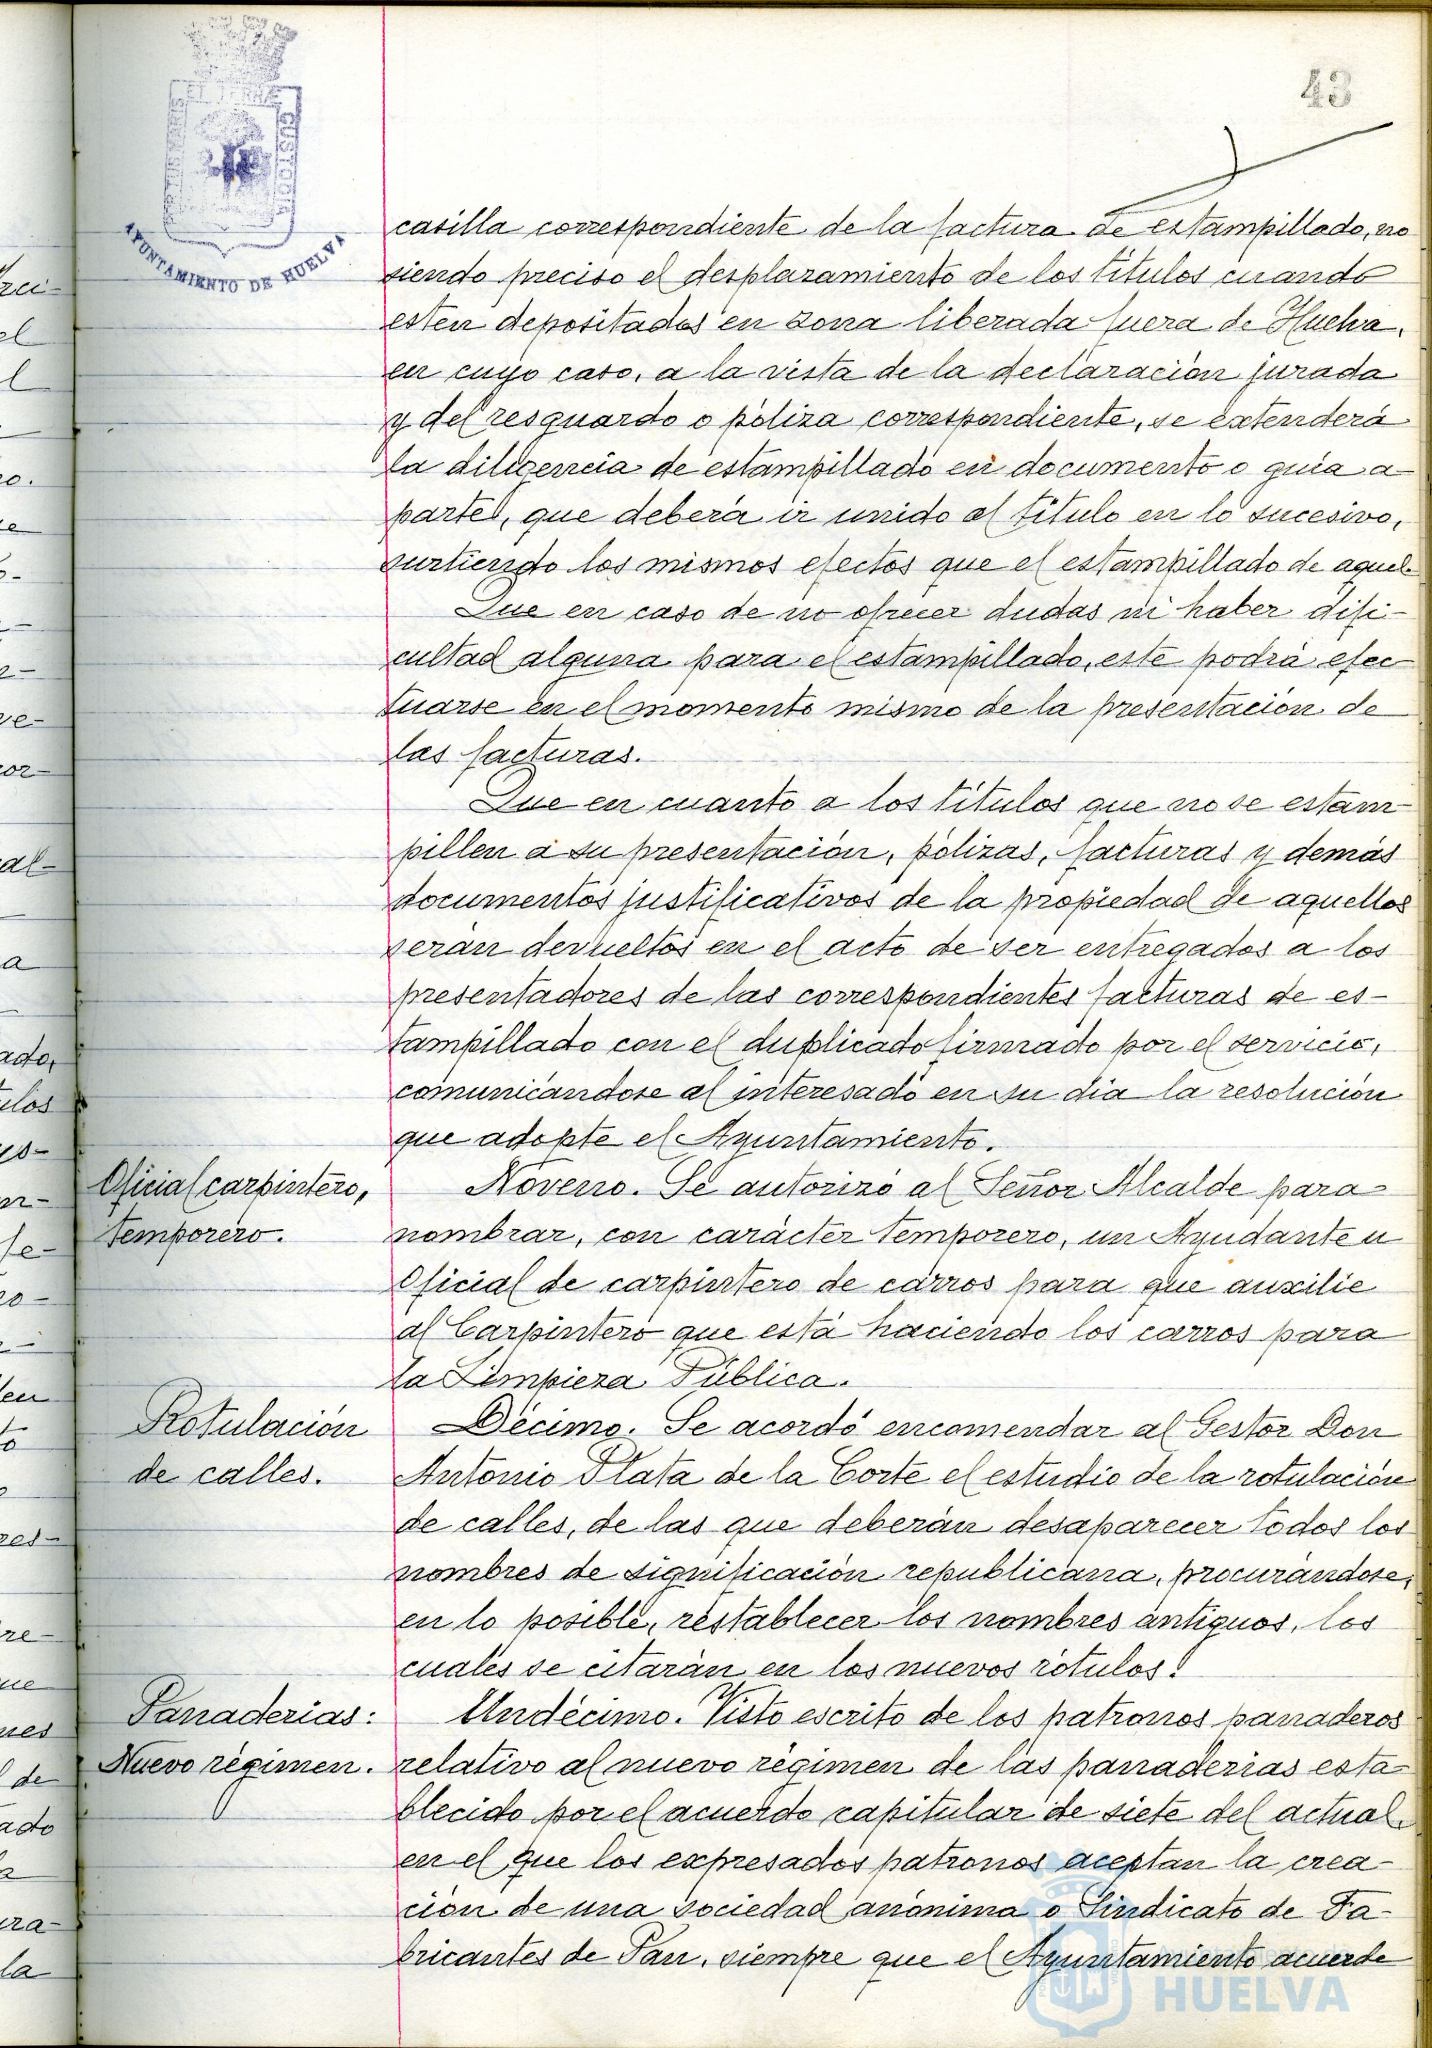 43
AYUNTAMIENTO DE HUELVA
casilla correspondiente de la factura de estampillado, no
siendo preciso el desplazamiento de los títulos cuando
estén depositados en zona liberada fuera de Huelva,
en cuyo caso, a la vista de la declaración jurada
y del resguardo o póliza correspondiente, se extenderá
la diligencia de estampillado en documento o guía a-
parte, que deberá ir unido al título en lo sucesivo,
surtiendo los mismos efectos que el estampillado de aquel.
Que en caso de no ofrecer dudas ni haber difi-
cultad alguna para el estampillado, este podrá efec-
tuarse en el momento mismo de la presentación de
las facturas.
Que en cuanto a los títulos que no se estam-
pillen a su presentación, pólizas, facturas y demás
documentos justificativos de la propiedad de aquellos
serán devueltos en el acto de ser entregados a los
presentadores de las correspondientes facturas de es-
tampillado con el duplicado firmado por el servicio,
comunicándose al interesado en su día la resolución
que adopte el Ayuntamiento.
Oficial carpintero,
temporero.
Noveno. Se autorizó al Señor Alcalde para
nombrar, con carácter temporero, un Ayudante u
Oficial de carpintero de carros para que auxilie
al Carpintero que está haciendo los carros para
la Limpieza Pública.
Rotulación
de calles.
Décimo. Se acordó encomendar al Gestor Don
Antonio Plata de la Corte el estudio de la rotulación
de calles, de las que deberán desaparecer todos los
nombres de significación republicana, procurándose,
en lo posible, restablecer los nombres antiguos, los
cuales se citarán en los nuevos rótulos.
Panaderías:
Nuevo régimen.
Undécimo. Visto escrito de los patronos panaderos
relativo al nuevo régimen de las panaderías esta-
blecido por el acuerdo capitular de siete del actual,
en el que los expresados patronos aceptan la crea-
ción de una sociedad anónima o Sindicato de Fa-
bricantes de Pan, siempre que el Ayuntamiento acuerde
HUELVA